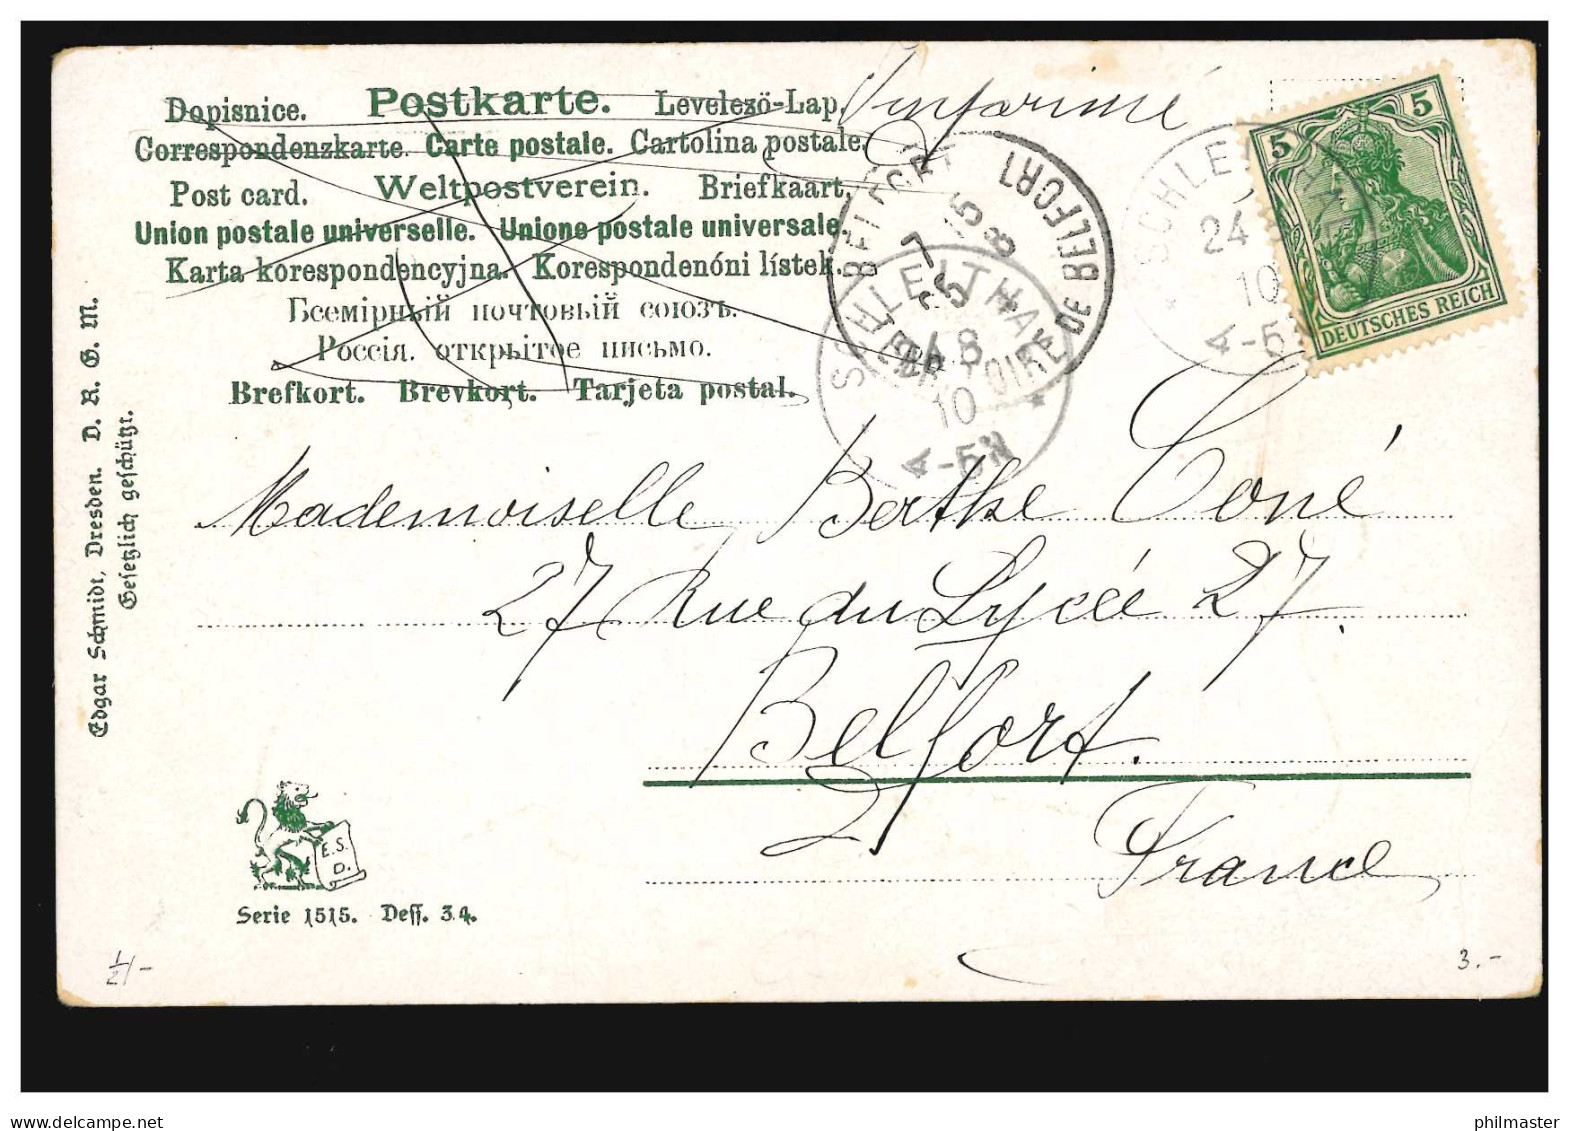 Dopisnice. Postkarte. Levelező-Lap.
Correspondenzkarte. Carte postale. Cartolina postale.
Post card. Weltpostverein. Briefkaart.
Union postale universelle. Unione postale universale.
Karta korespondencyjna. Korespondenóni lístek.
Всемірный почтовый союзъ.
Россія. открытое письмо.
Brefkort. Brevkort. Tarjeta postal.
Imprimé
5 5
DEUTSCHES REICH
SCHLEITHAL
24
10
4-5
BELFORT
BELFORT
TERRITOIRE DE
SCHLEITHAL
24 8
10
4-5N
Mademoiselle Berthe Coné
27 Rue du Lycée 27.
Belfort.
France
Edgar Schmidt, Dresden. D. R. G. M.
Gesetzlich geschützt.
E.S.
D.
Serie 1515. Dess. 34.
3.-
philmaster